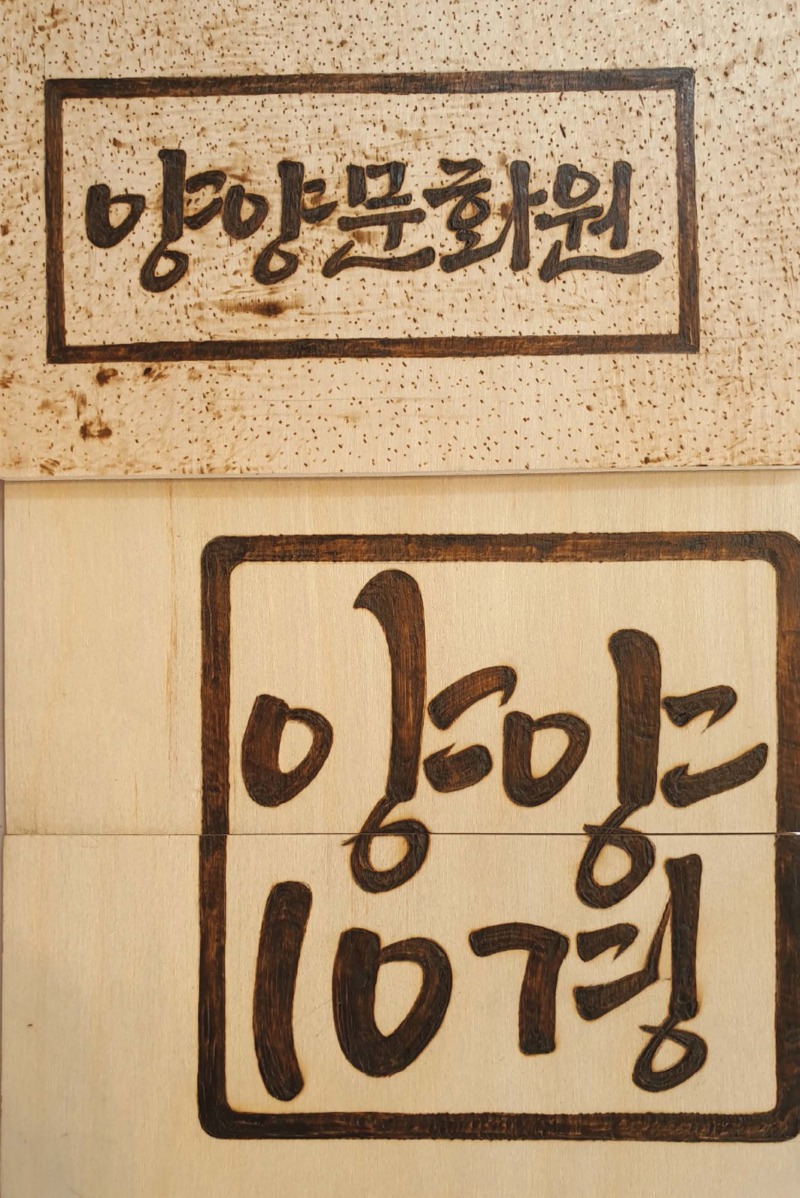 양양문화원
양양
10경